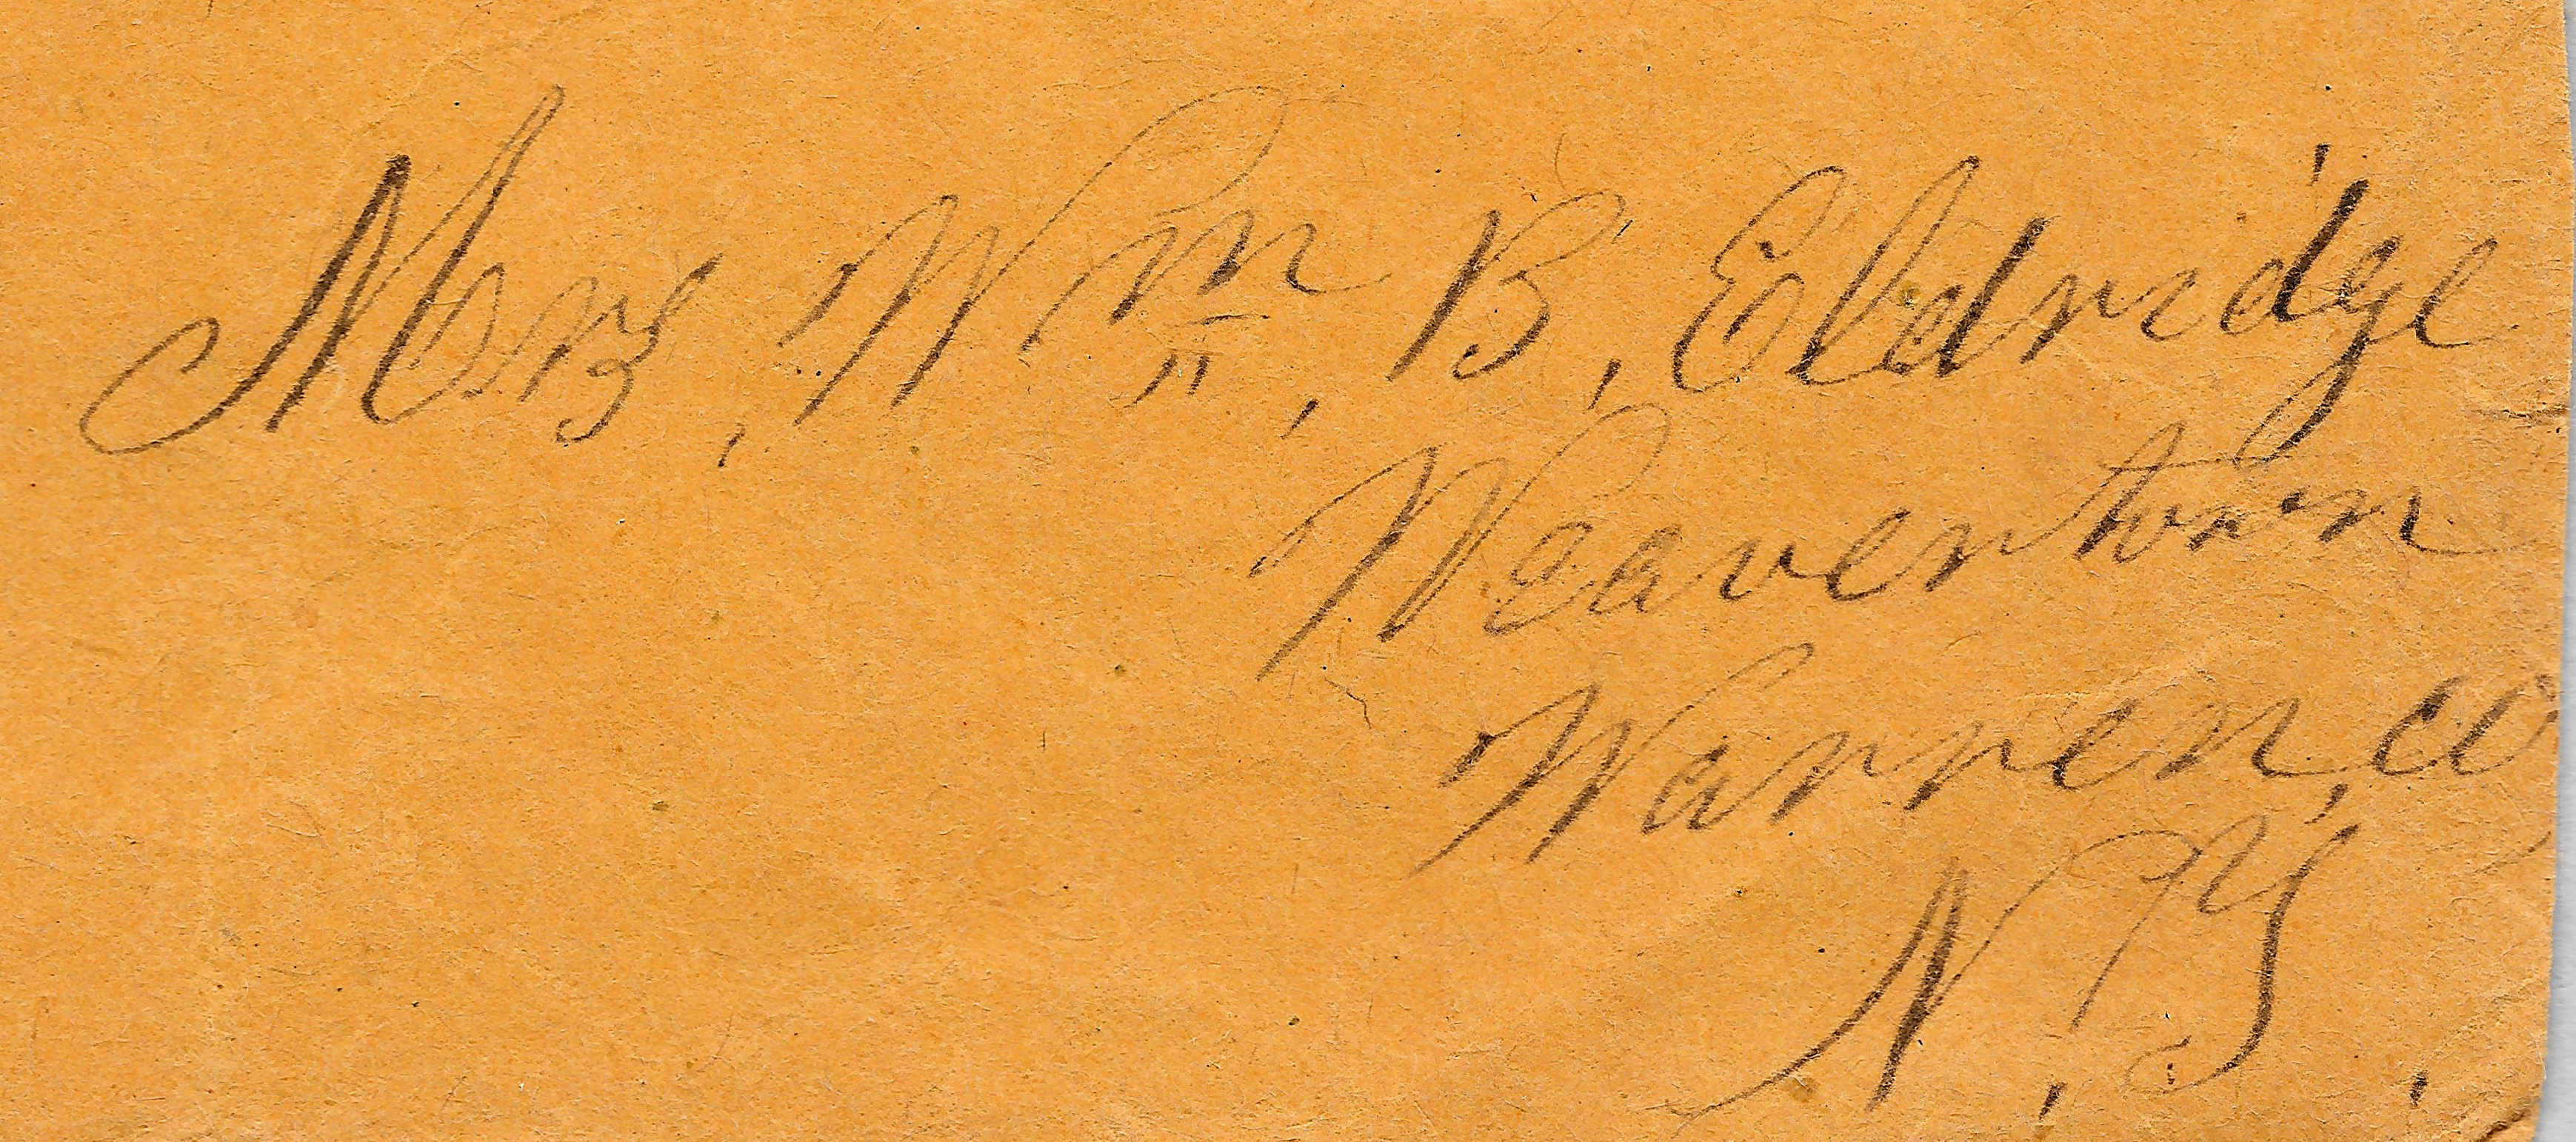 Mrs, Wm, B, Eldridge
Weavertown
Warren, Co
N, Y,